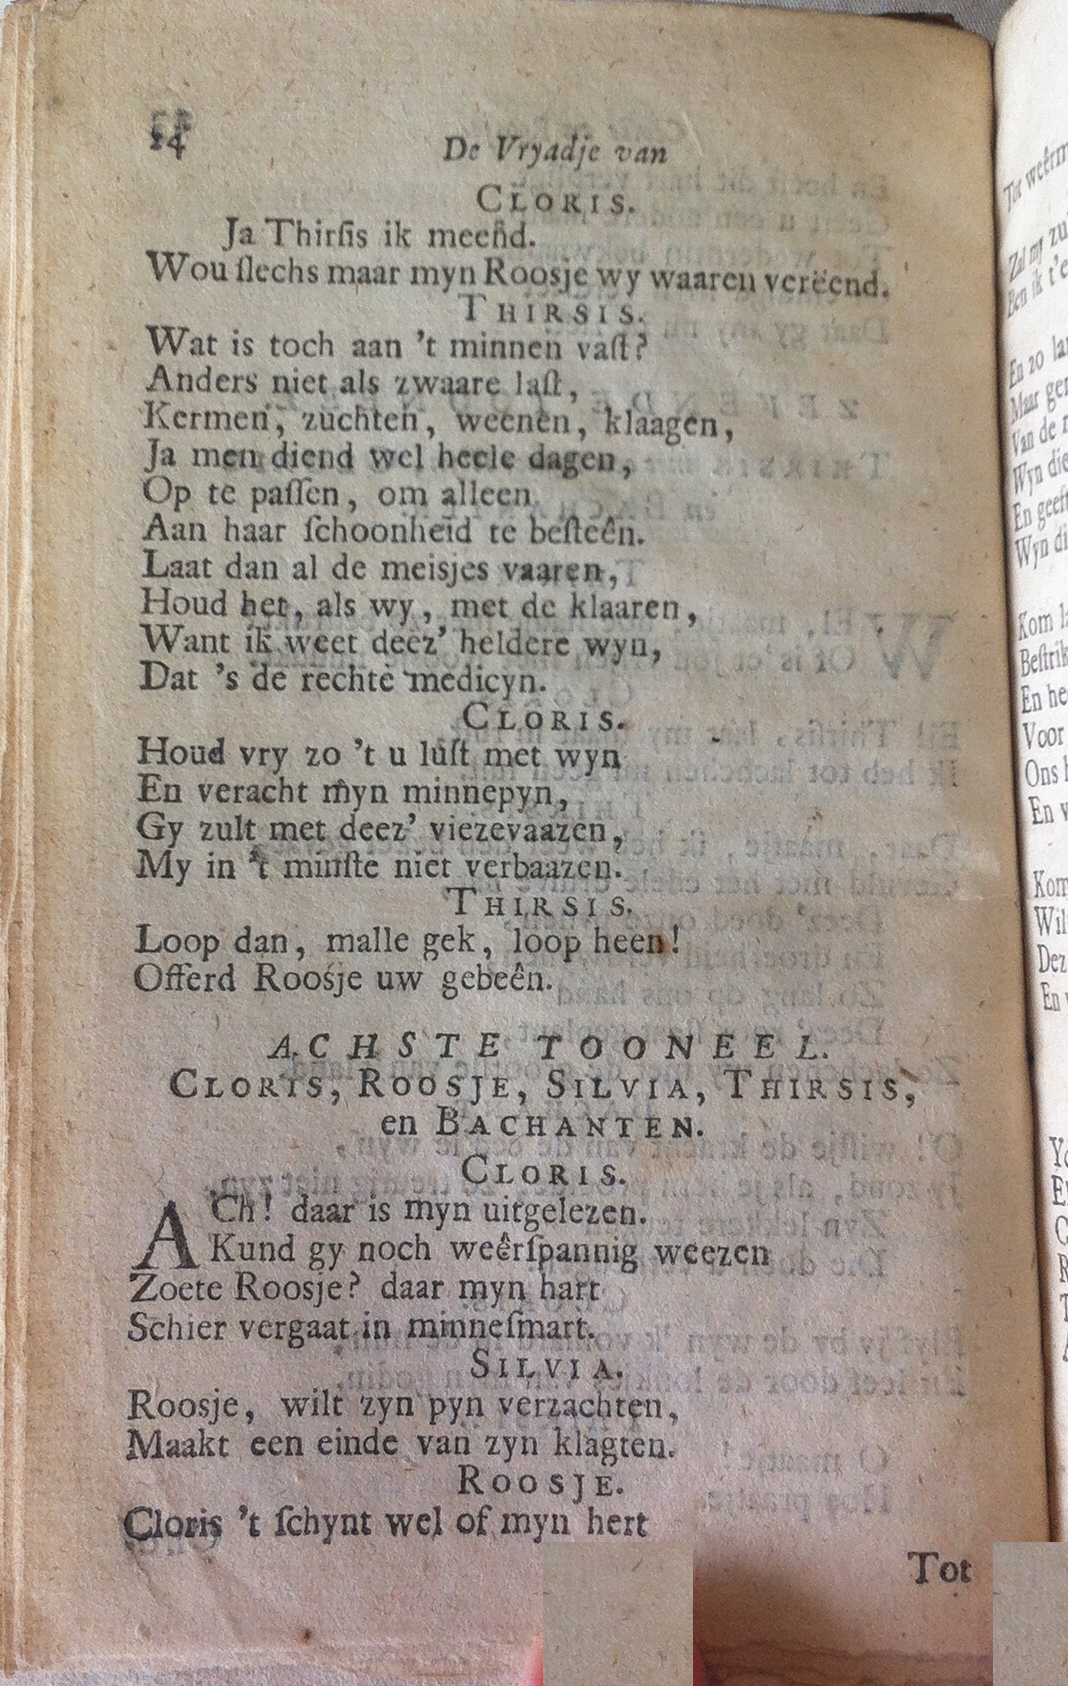 14
De Vryadje van
CLORIS.
Ja Thirſis ik meend.
Wou ſlechs maar myn Roosje wy waaren verëend.
THIRSIS.
Wat is toch aan 't minnen vaſt?
Anders niet als zwaare laſt,
Kermen, zuchten, weenen, klaagen,
Ja men diend wel heele dagen,
Op te paſſen, om alleen
Aan haar ſchoonheid te beſteên.
Laat dan al de meisjes vaaren,
Houd het, als wy, met de klaaren,
Want ik weet deez' heldere wyn,
Dat 's de rechte medicyn.
CLORIS.
Houd vry zo 't u luſt met wyn
En veracht myn minnepyn,
Gy zult met deez' viezevaazen,
My in 't minſte niet verbaazen.
THIRSIS.
Loop dan, malle gek, loop heen!
Offerd Roosje uw gebeên.
ACHSTE TOONEEL.
CLORIS, ROOSJE, SILVIA, THIRSIS,
en BACHANTEN.
CLORIS.
ACh! daar is myn uitgelezen.
Kund gy noch weêrſpannig weezen
Zoete Roosje? daar myn hart
Schier vergaat in minneſmart.
SILVIA.
Roosje, wilt zyn pyn verzachten,
Maakt een einde van zyn klagten.
ROOSJE.
Cloris 't ſchynt wel of myn hert
Tot
Tot
Zal my
En zo
Maar
Van de
Wyn
En
Wyn
Kom
En
Voor
Ons
En